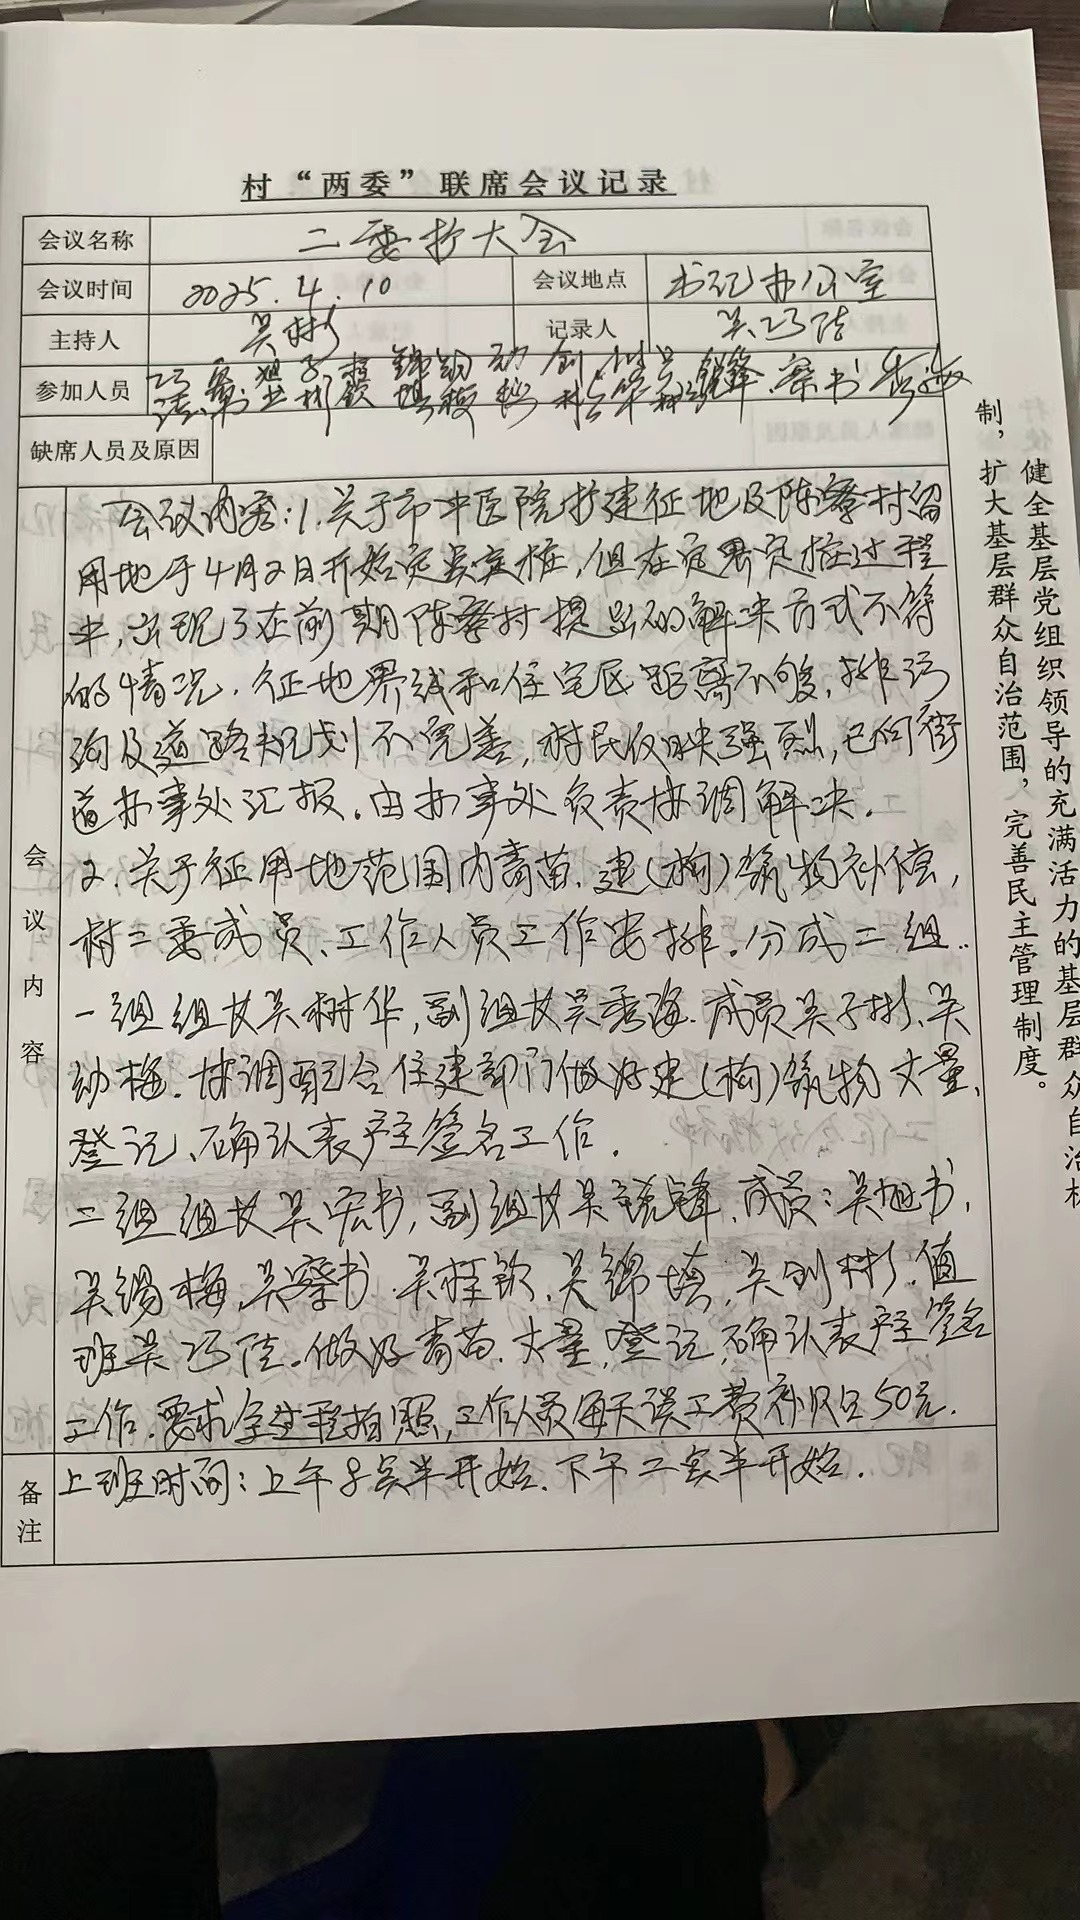 村“两委”联席会议记录
会议名称 二委扩大会
会议时间 2025.4.10 会议地点 书记办公室
主持人 吴彬 记录人 吴巧陆
参加人员
缺席人员及原因
会议内容
会议内容:1.关于市中医院扩建征地及陈寮村留
用地于4月2日开始定界定桩,但在定界定桩过程
中,出现了在前期陈寮村提出的解决方式不符
的情况.征地界线和住宅区距离不够,排污
沟及道路规划不完善,村民反映强烈,已向街
道办事处汇报。由办事处负责协调解决.
2.关于征用地范围内青苗.建(构)筑物补偿,
村二委成员、工作人员工作安排。分成二组.
一组组长吴树华,副组长吴秀海.成员吴子彬、吴
幼梅.协调配合住建部门做好建(构)筑物丈量、
登记、确认表户主签名工作.
二组组长吴宏书,副组长吴锐锋.成员:吴旭书,
吴锡梅,吴寮书.吴桂钦.吴锦填,吴创彬.值
班吴巧陆。做好青苗.丈量,登记,确认表户主签名
工作.要求全过程拍照,工作人员每天误工费补贴50元.
备注
上班时间:上午8点半开始.下午二点半开始.
健全基层党组织领导的充满活力的基层群众自治
制,扩大基层群众自治范围,完善民主管理制度。